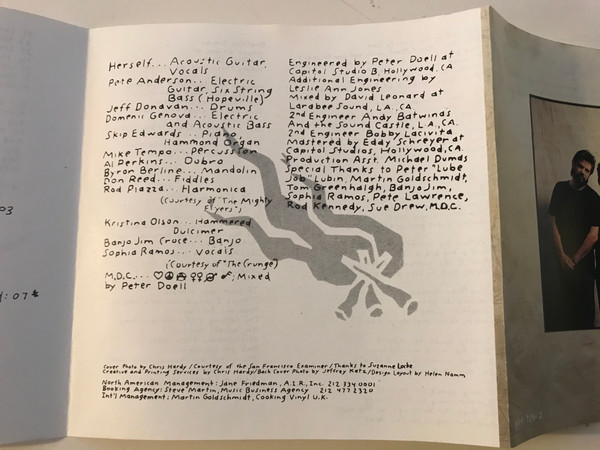 Herself... Acoustic Guitar,
Vocals
Pete Anderson... Electric
Guitar, Six String
Bass (Hopeville)
Jeff Donavan... Drums
Domenic Genova... Electric
and Acoustic Bass
Skip Edwards... Piano,
Hammond Organ
Mike Tempo... Percussion
Al Perkins... Dobro
Byron Berline... Mandolin
Don Reed... Fiddles
Rod Piazza... Harmonica
(courtesy of "The Mighty
Flyers")
Kristina Olson... Hammered
Dulcimer
Banjo Jim Cruce... Banjo
Sophia Ramos... Vocals
(courtesy of "The Grunge")
M.D.C.... ; Mixed
by Peter Doell
Engineered by Peter Doell at
Capitol Studio B, Hollywood, CA
Additional Engineering by
Leslie Ann Jones
Mixed by David Leonard at
Larabee Sound, L.A., CA
2nd Engineer Andy Batwinas
And the Sound Castle, L.A., CA.
2nd Engineer Bobby Lacivita
Mastered by Eddy Schreyer at
Capitol Studios, Hollywood, CA.
Production Asst. Michael Dumas
Special Thanks to Peter "Lube
Job" Lubin, Martin Goldschmidt,
Tom Greenhalgh, Banjo Jim,
Sophia Ramos, Pete Lawrence,
Rod Kennedy, Sue Drew, M.D.C.
Cover Photo by Chris Hardy / Courtesy of the San Francisco Examiner / Thanks to Suzanne Locke
Creative and Printing Services by Chris Hardy / Back Cover Photo by Jeffrey Katz / Design Layout by Helen Namm
North American Management: Jane Friedman, A.I.R., Inc. 212 334 0001
Booking Agency: Steve Martin, Music Business Agency 212 477 2320
Int'l Management: Martin Goldschmidt, Cooking Vinyl U.K.